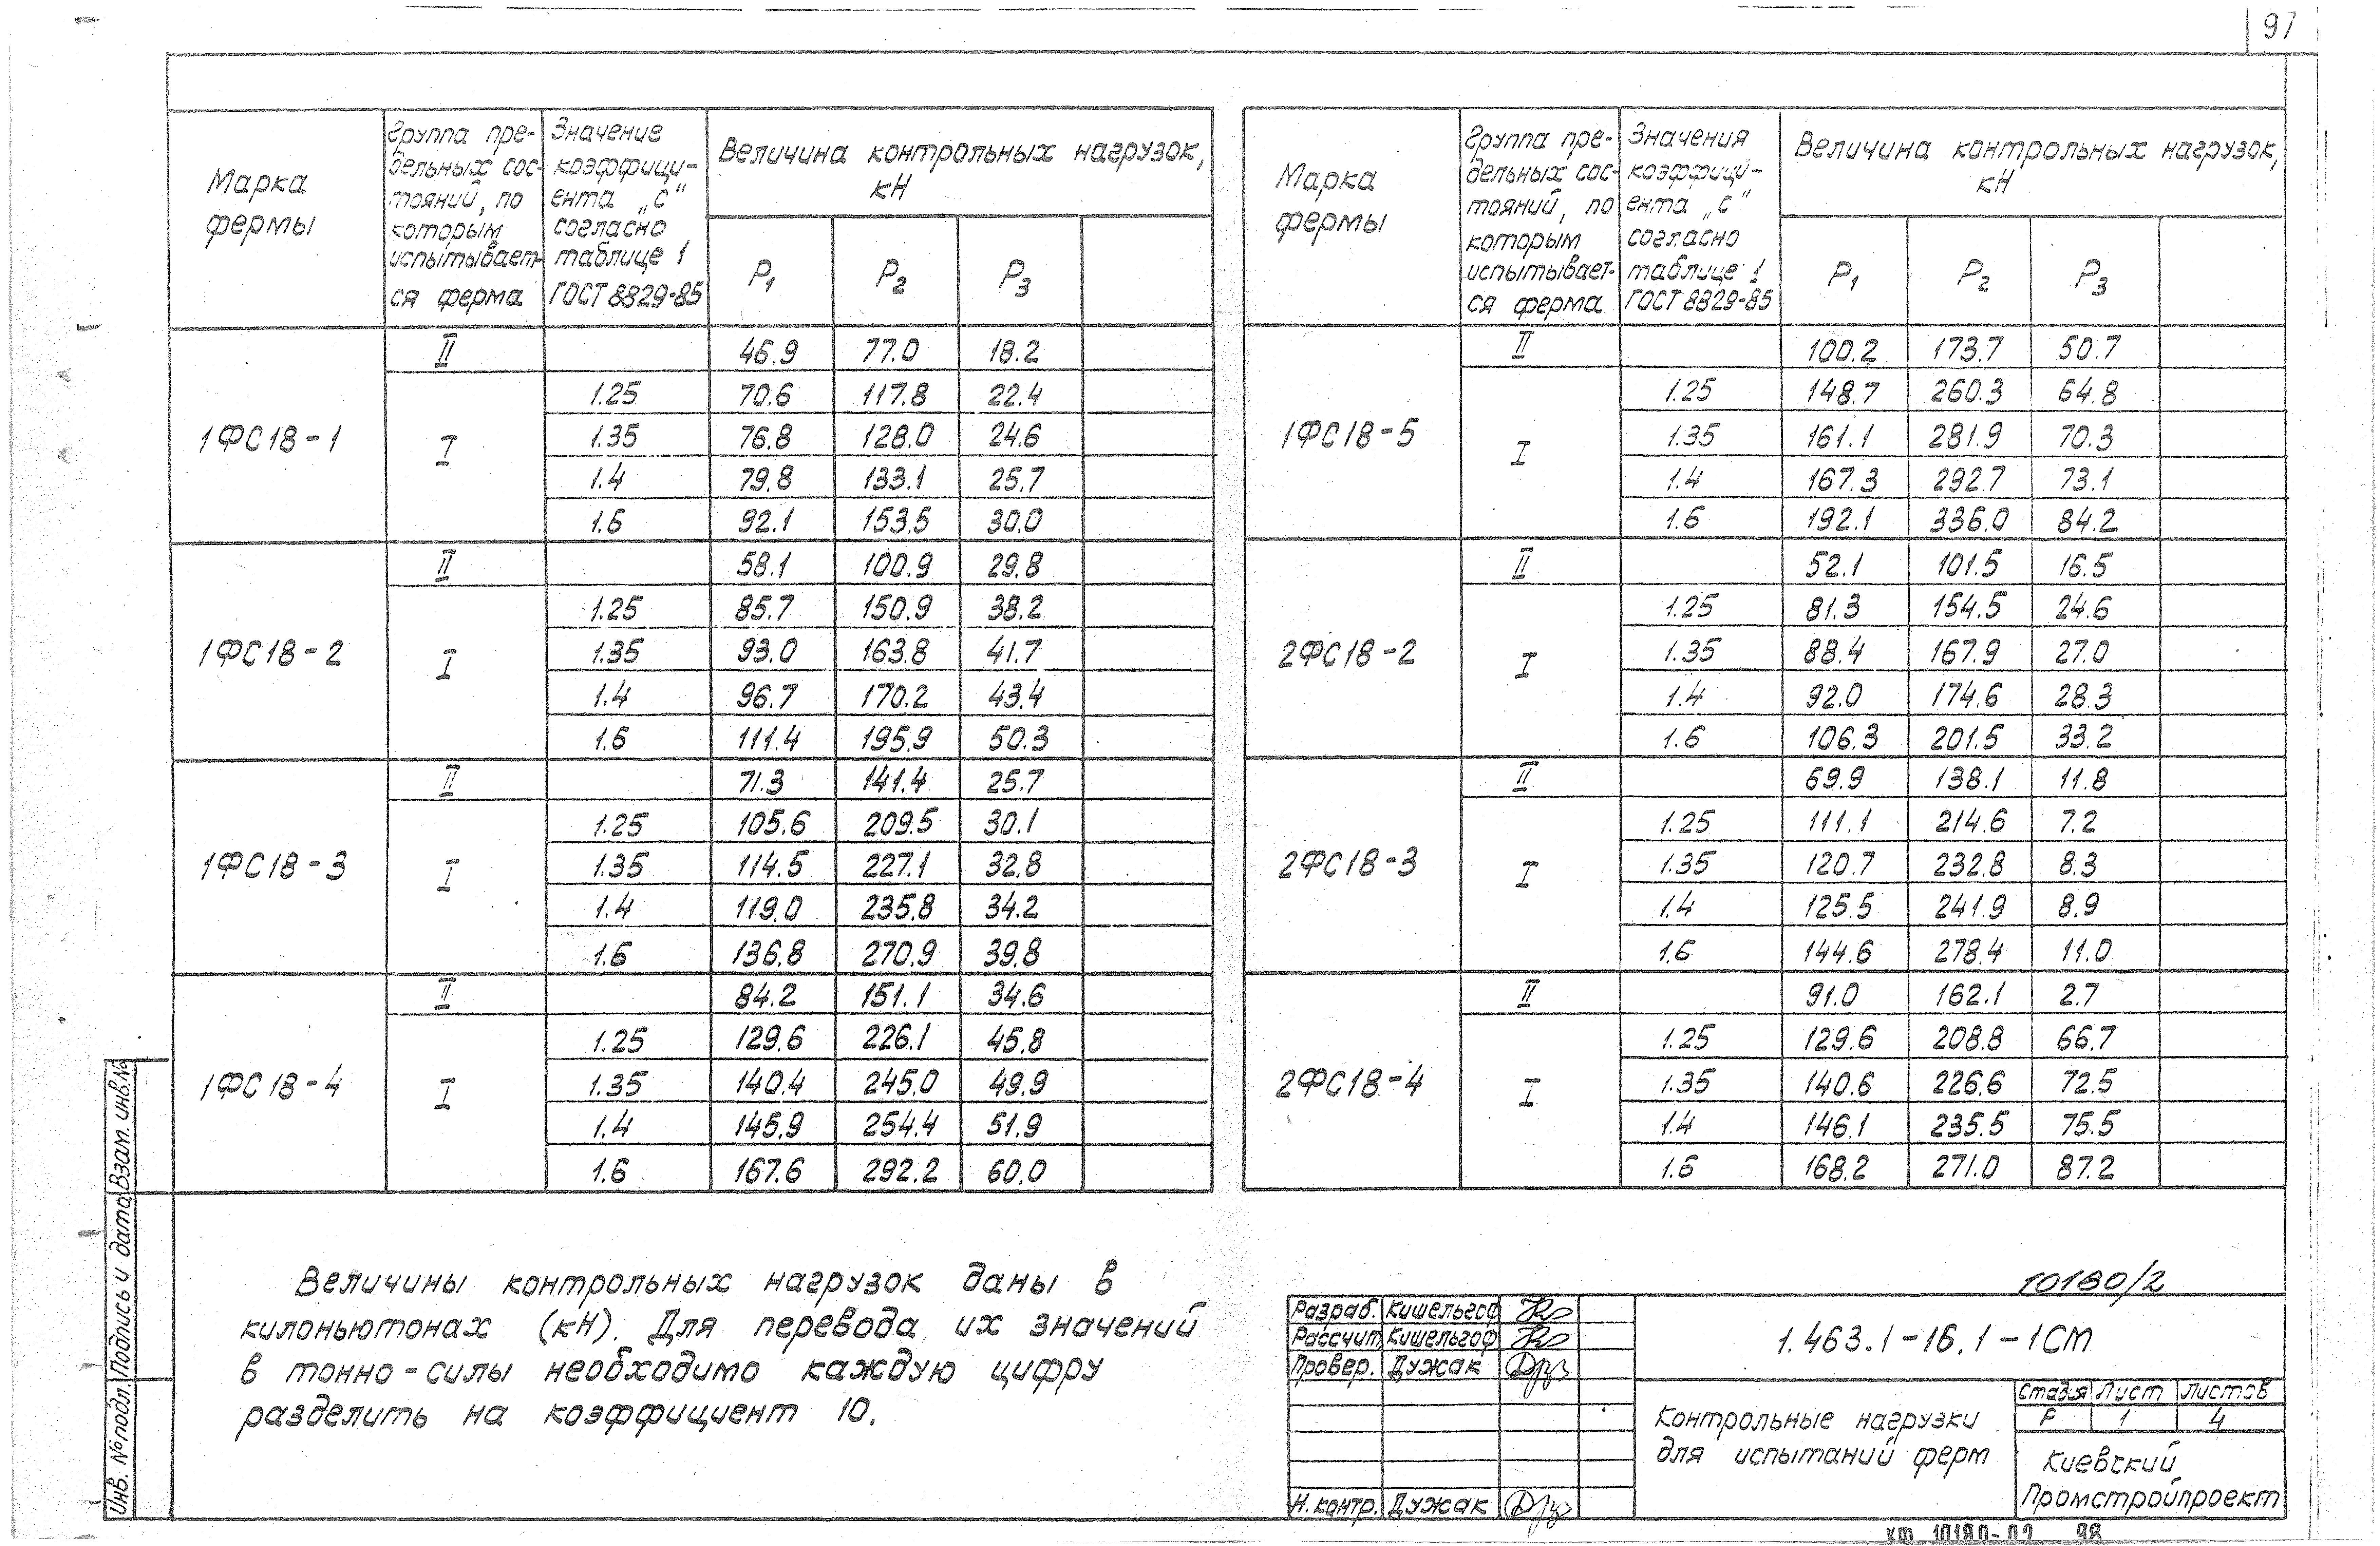 97
Марка фермы | Группа пре-дельных сос-тояний, по которым испытывает-ся ферма | Значение коэффици-ента „с" согласно таблице 1 ГОСТ 8829-85 | Величина контрольных нагрузок, кН
P1 | P2 | P3
1ФС18-1 | II | 46.9 | 77.0 | 18.2
I | 1.25 | 70.6 | 117.8 | 22.4
1.35 | 76.8 | 128.0 | 24.6
1.4 | 79.8 | 133.1 | 25.7
1.6 | 92.1 | 153.5 | 30.0
1ФС18-2 | II | 58.1 | 100.9 | 29.8
I | 1.25 | 85.7 | 150.9 | 38.2
1.35 | 93.0 | 163.8 | 41.7
1.4 | 96.7 | 170.2 | 43.4
1.6 | 111.4 | 195.9 | 50.3
1ФС18-3 | II | 71.3 | 141.4 | 25.7
I | 1.25 | 105.6 | 209.5 | 30.1
1.35 | 114.5 | 227.1 | 32.8
1.4 | 119.0 | 235.8 | 34.2
1.6 | 136.8 | 270.9 | 39.8
1ФС18-4 | II | 84.2 | 151.1 | 34.6
I | 1.25 | 129.6 | 226.1 | 45.8
1.35 | 140.4 | 245.0 | 49.9
1.4 | 145.9 | 254.4 | 51.9
1.6 | 167.6 | 292.2 | 60.0
Марка фермы | Группа пре-дельных сос-тояний, по которым испытывает-ся ферма | Значения коэффици-ента „с" согласно таблице 1 ГОСТ 8829-85 | Величина контрольных нагрузок, кН
P1 | P2 | P3
1ФС18-5 | II | 100.2 | 173.7 | 50.7
I | 1.25 | 148.7 | 260.3 | 64.8
1.35 | 161.1 | 281.9 | 70.3
1.4 | 167.3 | 292.7 | 73.1
1.6 | 192.1 | 336.0 | 84.2
2ФС18-2 | II | 52.1 | 101.5 | 16.5
I | 1.25 | 81.3 | 154.5 | 24.6
1.35 | 88.4 | 167.9 | 27.0
1.4 | 92.0 | 174.6 | 28.3
1.6 | 106.3 | 201.5 | 33.2
2ФС18-3 | II | 69.9 | 138.1 | 11.8
I | 1.25 | 111.1 | 214.6 | 7.2
1.35 | 120.7 | 232.8 | 8.3
1.4 | 125.5 | 241.9 | 8.9
1.6 | 144.6 | 278.4 | 11.0
2ФС18-4 | II | 91.0 | 162.1 | 2.7
I | 1.25 | 129.6 | 208.8 | 66.7
1.35 | 140.6 | 226.6 | 72.5
1.4 | 146.1 | 235.5 | 75.5
1.6 | 168.2 | 271.0 | 87.2
Величины контрольных нагрузок даны в
килоньютонах (кН). Для перевода их значений
в тонно-силы необходимо каждую цифру
разделить на коэффициент 10.
Инв. № подл. | Подпись и дата | Взам. инв. №
10180/2
Разраб. | Кишельгоф
Рассчит. | Кишельгоф
Провер. | Дужак
Н. контр. | Дужак
1.463.1-16.1-1СМ
Контрольные нагрузки
для испытаний ферм
Стадия | Лист | Листов
Р | 1 | 4
Киевский
Промстройпроект
КФ 10180-02 98